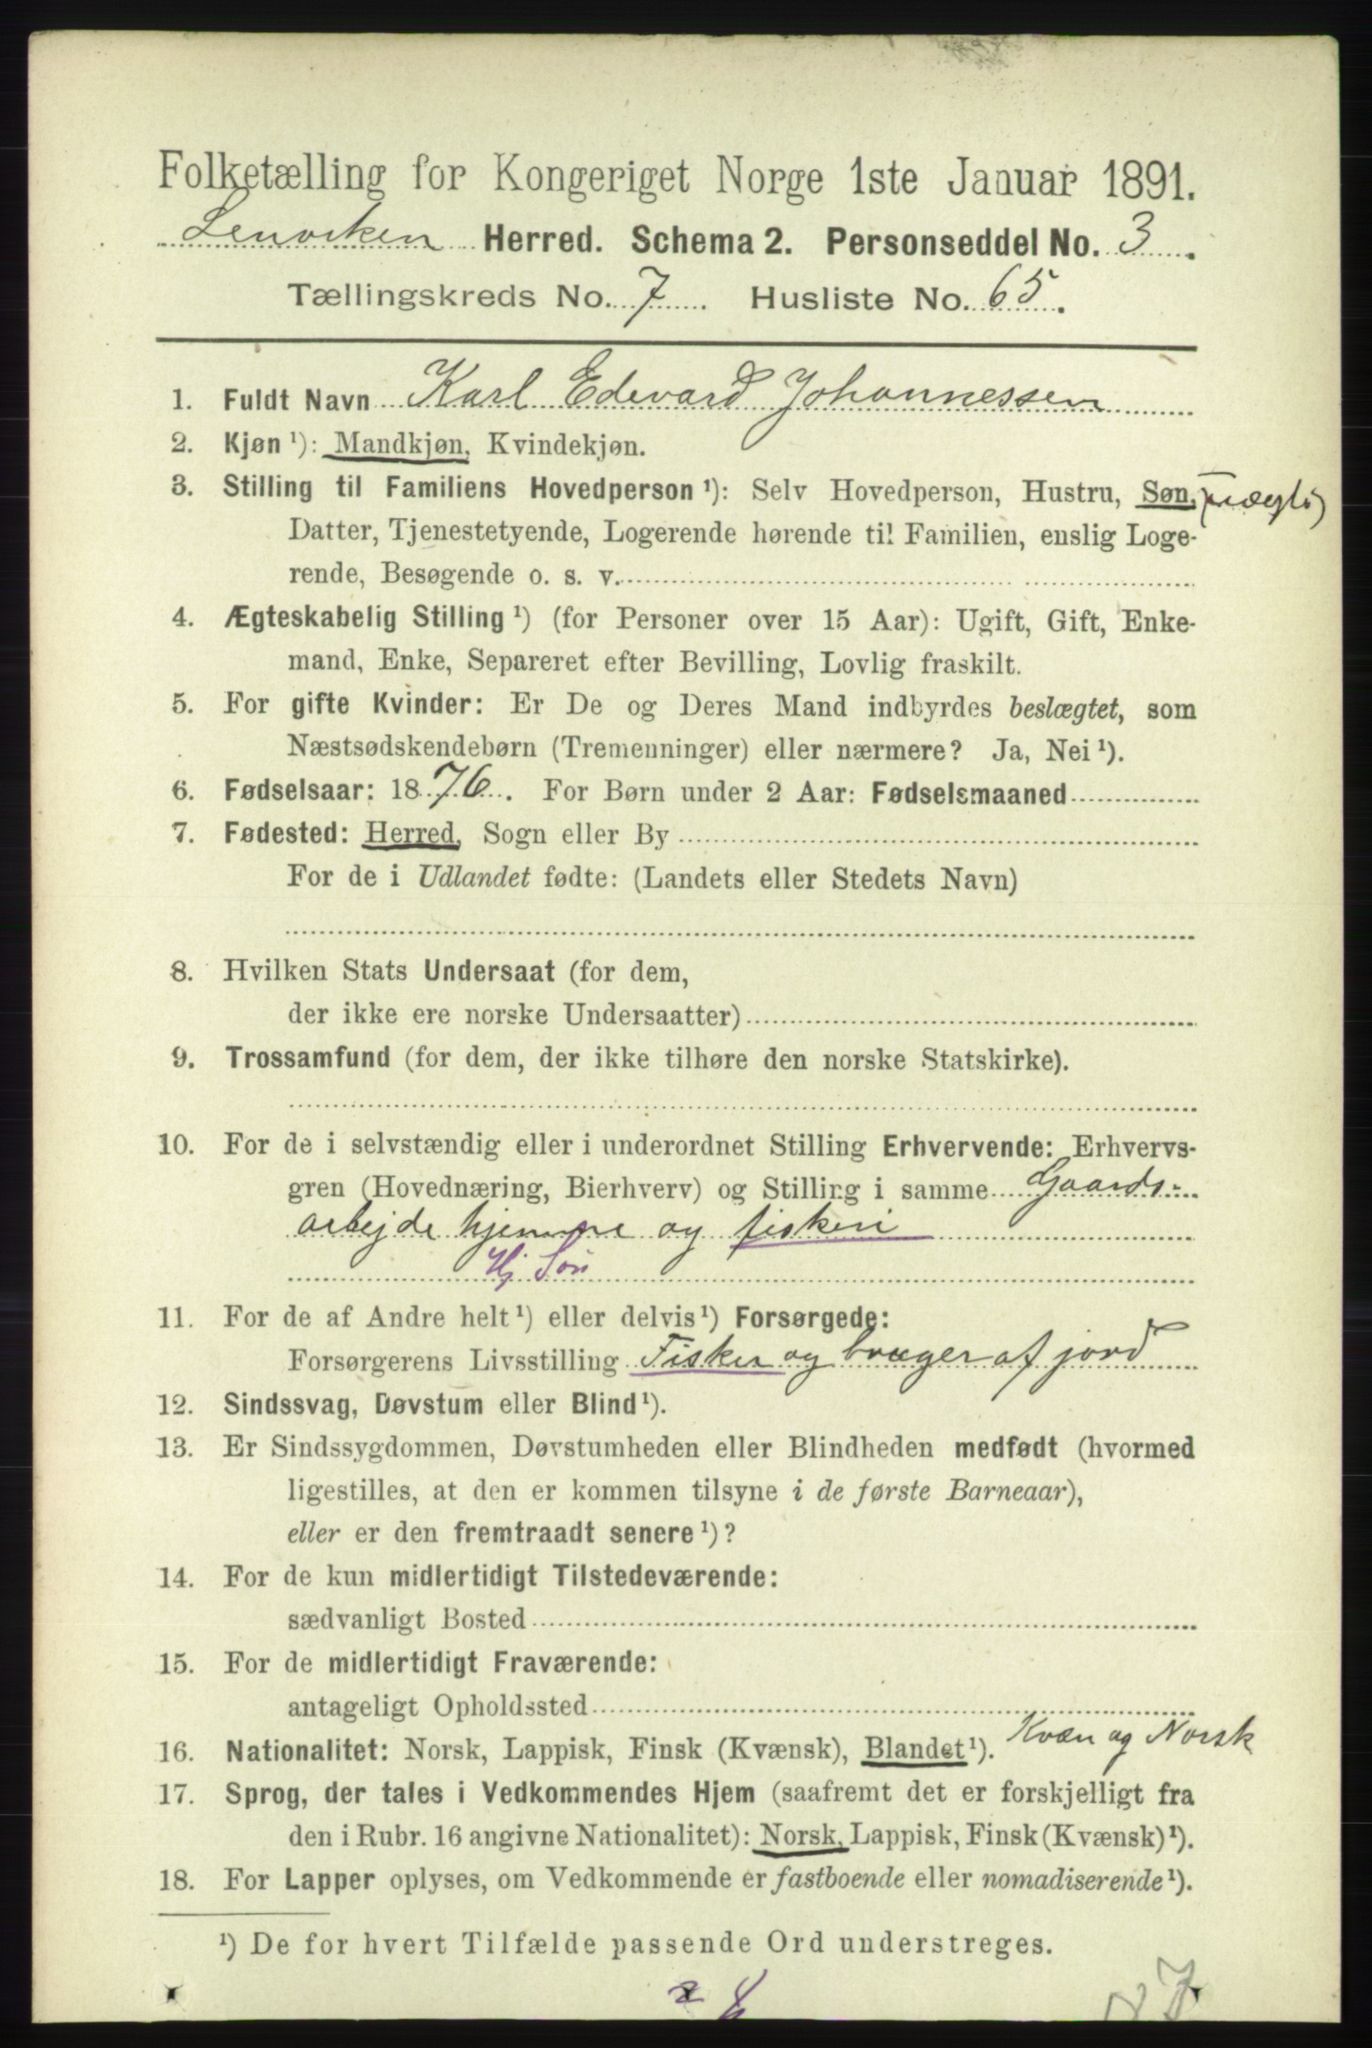 Folketælling for Kongeriget Norge 1ste Januar 1891.
Lenviken Herred. Schema 2. Personseddel No. 3.
Tællingskreds No. 7. Husliste No. 65.
1. Fuldt Navn Karl Edevard Johannessen
2. Kjøn ¹): Mandkjøn, Kvindekjøn.
3. Stilling til Familiens Hovedperson ¹): Selv Hovedperson, Hustru, Søn,
Datter, Tjenestetyende, Logerende hørende til Familien, enslig Loge-
rende, Besøgende o. s. v.
4. Ægteskabelig Stilling ¹) (for Personer over 15 Aar): Ugift, Gift, Enke-
mand, Enke, Separeret efter Bevilling, Lovlig fraskilt.
5. For gifte Kvinder: Er De og Deres Mand indbyrdes beslægtet, som
Næstsødskendebørn (Tremenninger) eller nærmere? Ja, Nei ¹).
6. Fødselsaar: 1876. For Børn under 2 Aar: Fødselsmaaned
7. Fødested: Herred, Sogn eller By
For de i Udlandet fødte: (Landets eller Stedets Navn)
8. Hvilken Stats Undersaat (for dem,
der ikke ere norske Undersaatter)
9. Trossamfund (for dem, der ikke tilhøre den norske Statskirke).
10. For de i selvstændig eller i underordnet Stilling Erhvervende: Erhvervs-
gren (Hovednæring, Bierhverv) og Stilling i samme Gaards-
arbejde hjemme og fiskeri
Hj Søn
11. For de af Andre helt ¹) eller delvis ¹) Forsørgede:
Forsørgerens Livsstilling Fisker og bruger af jord
12. Sindssvag, Døvstum eller Blind ¹).
13. Er Sindssygdommen, Døvstumheden eller Blindheden medfødt (hvormed
ligestilles, at den er kommen tilsyne i de første Barneaar),
eller er den fremtraadt senere ¹)?
14. For de kun midlertidigt Tilstedeværende:
sædvanligt Bosted
15. For de midlertidigt Fraværende:
antageligt Opholdssted
16. Nationalitet: Norsk, Lappisk, Finsk (Kvænsk), Blandet ¹). Kvæn og Norsk
17. Sprog, der tales i Vedkommendes Hjem (saafremt det er forskjelligt fra
den i Rubr. 16 angivne Nationalitet): Norsk, Lappisk, Finsk (Kvænsk) ¹).
18. For Lapper oplyses, om Vedkommende er fastboende eller nomadiserende ¹).
¹) De for hvert Tilfælde passende Ord understreges.